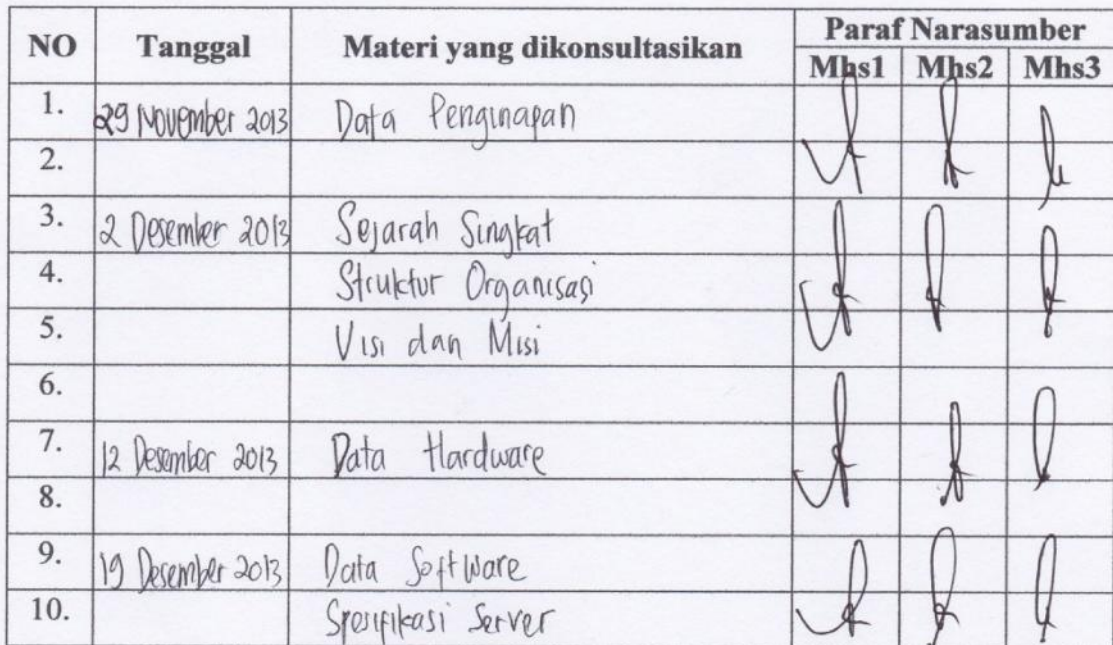 NO Tanggal Materi yang dikonsultasikan Paraf Narasumber
Mhs1 Mhs2 Mhs3
1. 29 November 2013 Data Penginapan
2.
3. 2 Desember 2013 Sejarah Singkat
4. Struktur Organisasi
5. Visi dan Misi
6.
7. 12 Desember 2013 Data Hardware
8.
9. 19 Desember 2013 Data Software
10. Spesifikasi Server